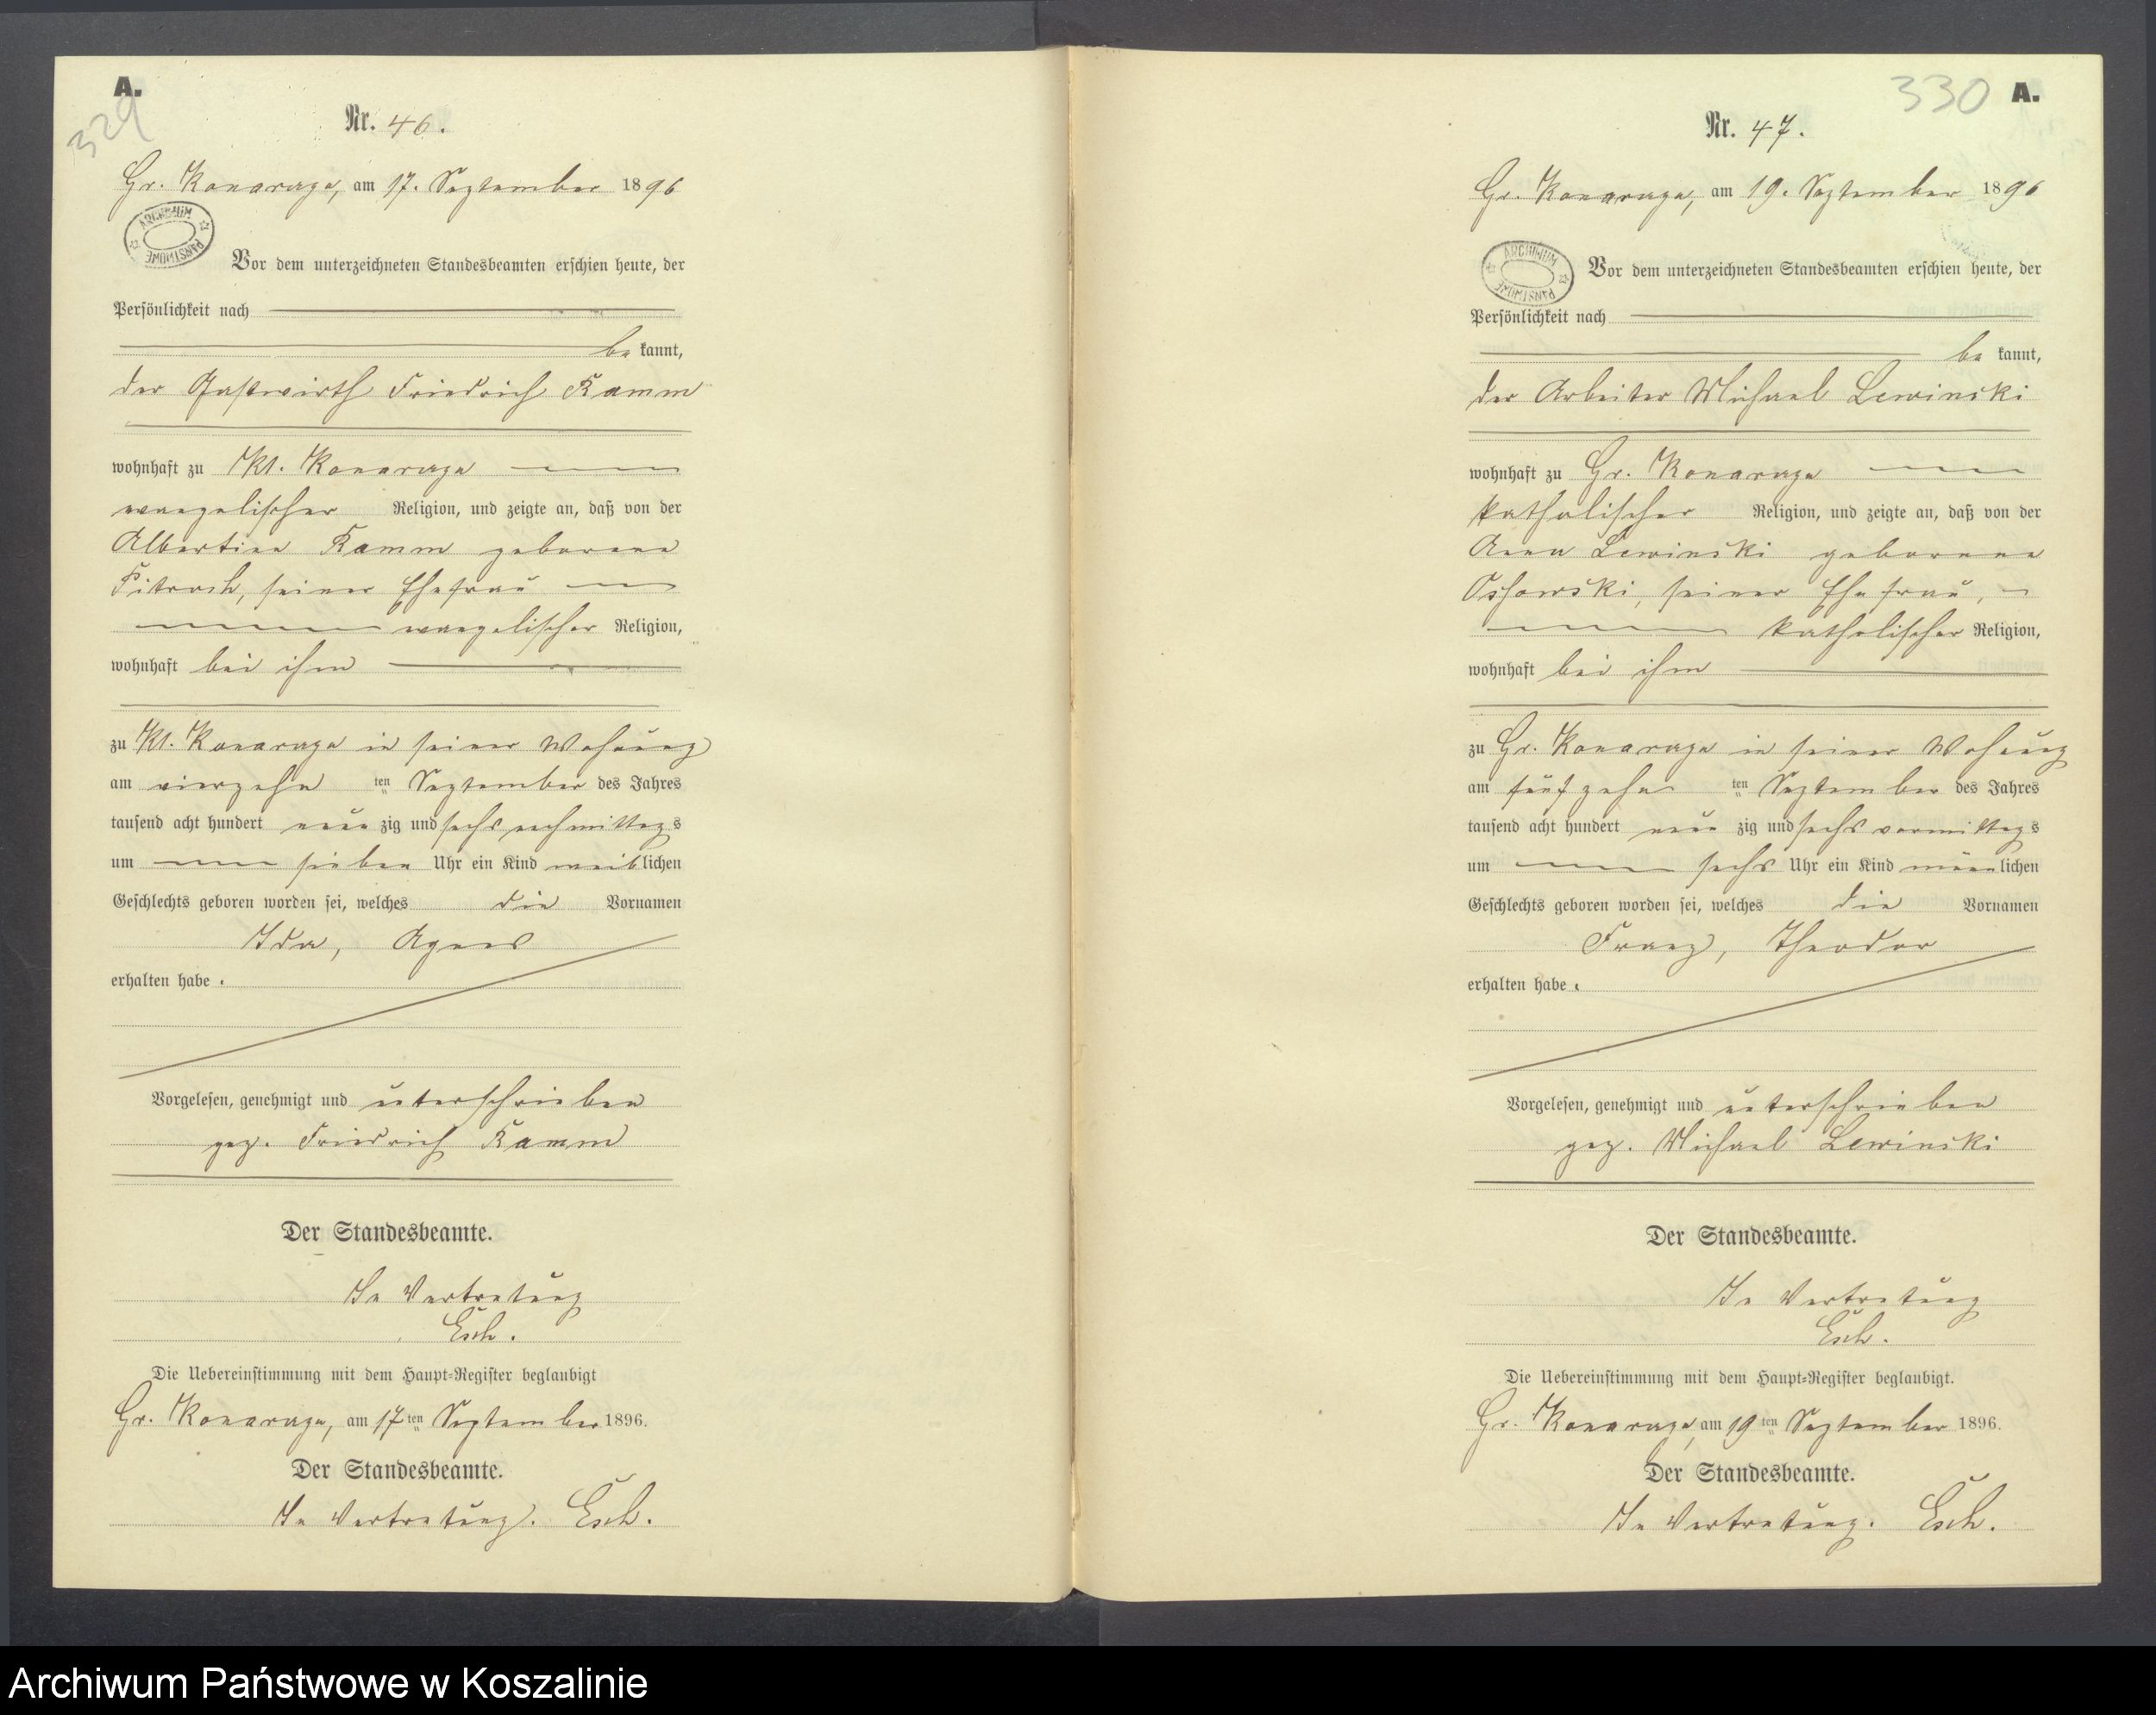 A.
329
Nr. 46.
Gr. Konarzyn, am 17. September 1896
ARCHIWUM PAŃSTWOWE
Vor dem unterzeichneten Standesbeamten erschien heute, der
Persönlichkeit nach
be kannt,
der Gastwirth Friedrich Ramm
wohnhaft zu Kl. Konarzyn
evangelischer Religion, und zeigte an, daß von der
Albertine Ramm geborene
seiner Ehefrau
evangelischer Religion,
wohnhaft bei ihm
zu Kl. Konarzyn in seiner Wohnung
am vierzehn ten September des Jahres
tausend acht hundert neun zig und sechs nachmittags
um sieben Uhr ein Kind weiblichen
Geschlechts geboren worden sei, welches die Vornamen
Ida, Agnes
erhalten habe.
Vorgelesen, genehmigt und unterschrieben
gez. Friedrich Ramm
Der Standesbeamte.
In Vertretung
Esch.
Die Uebereinstimmung mit dem Haupt-Register beglaubigt
Gr. Konarzyn, am 17 ten September 1896.
Der Standesbeamte.
In Vertretung. Esch.
330 A.
Nr. 47.
Gr. Konarzyn, am 19. September 1896
ARCHIWUM PAŃSTWOWE
Vor dem unterzeichneten Standesbeamten erschien heute, der
Persönlichkeit nach
be kannt,
der Arbeiter Michael Lewinski
wohnhaft zu Gr. Konarzyn
katholischer Religion, und zeigte an, daß von der
Anna Lewinski geborene
Ossowski, seiner Ehefrau,
katholischer Religion,
wohnhaft bei ihm
zu Gr. Konarzyn in seiner Wohnung
am fünfzehn ten September des Jahres
tausend acht hundert neun zig und sechs vormittags
um sechs Uhr ein Kind männlichen
Geschlechts geboren worden sei, welches die Vornamen
Franz, Theodor
erhalten habe.
Vorgelesen, genehmigt und unterschrieben
gez. Michael Lewinski
Der Standesbeamte.
In Vertretung
Esch.
Die Uebereinstimmung mit dem Haupt-Register beglaubigt.
Gr. Konarzyn, am 19 ten September 1896.
Der Standesbeamte.
In Vertretung. Esch.
Archiwum Państwowe w Koszalinie